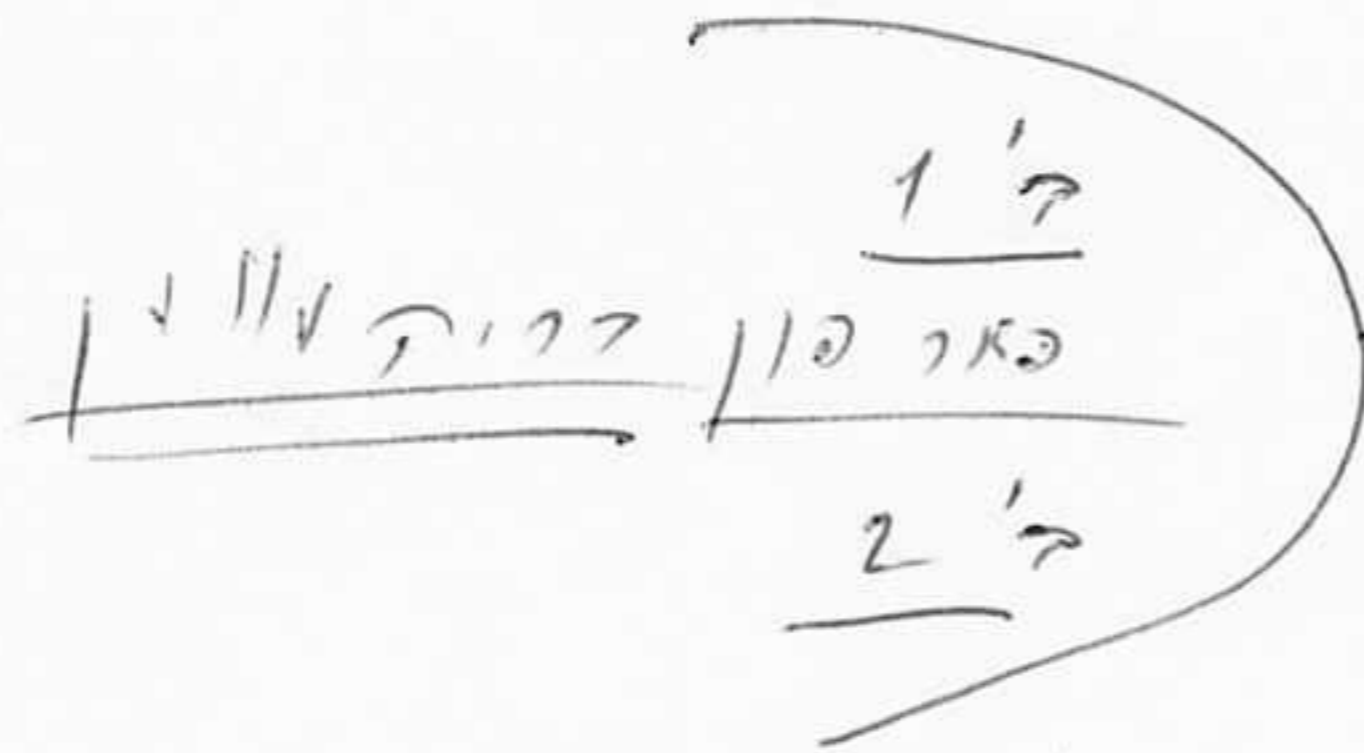 ק' 1
פאר פון דריקעווען
ק' 2